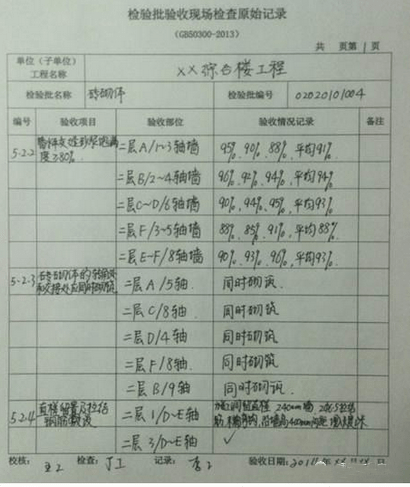 检验批验收现场检查原始记录
(GB50300-2013)
共 页第1页
单位（子单位）
工程名称 ××综合楼工程
检验批名称 砖砌体 检验批编号 02020101004
编号 验收项目 验收部位 验收情况记录 备注
5.2.2 二层A/1~3轴墙 95%、90%、88%，平均91%
度≥80%
二层B/2~4轴墙 96%、92%、94%，平均94%
二层C~D/6轴墙 90%、94%、95%，平均93%
二层F/3~5轴墙 88%、85%、91%，平均88%
二层E~F/8轴墙 90%、93%、96%，平均93%
5.2.3 砖砌体的转角处
和交接处应同时砌筑
二层A/5轴 同时砌筑
二层C/8轴 同时砌筑
二层D/4轴 同时砌筑
二层F/8轴 同时砌筑
二层B/9轴 同时砌筑
5.2.4 直槎留置及拉结
钢筋敷设
二层1/D~E轴 240mm墙
二层3/D~E轴 ✓
校核： 王2 检查： 丁工 记录： 李2 验收日期：